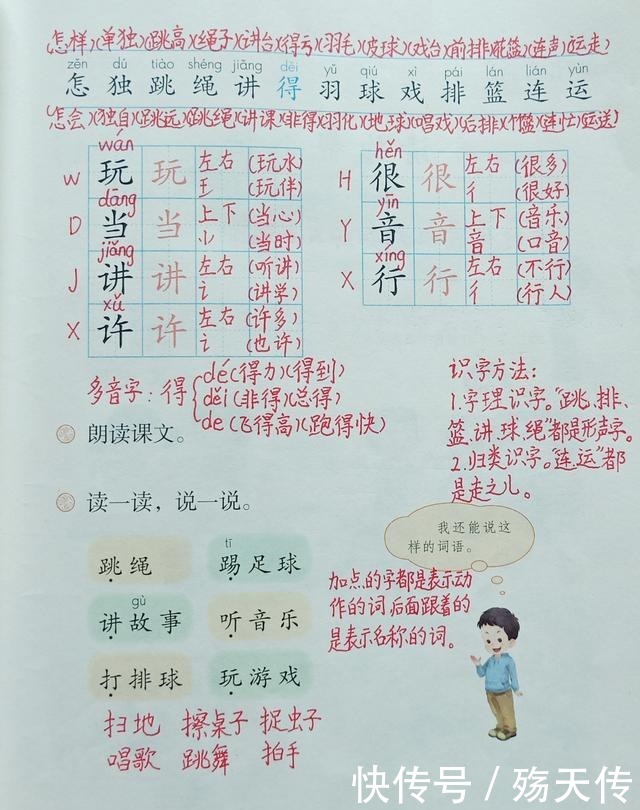 怎样)(单独)(跳高)(绳子)(讲台)(得亏)(羽毛)(皮球)(戏台)(前排)(花篮)(连声)(运走)
zěn dú tiào shéng jiǎng děi yǔ qiú xì pái lán lián yùn
怎 独 跳 绳 讲 得 羽 球 戏 排 篮 连 运
怎会)(独自)(跳远)(跳绳)(讲课)(非得)(羽化)(地球)(唱戏)(后排)(个篮)(连忙)(运送)
wán
W 玩 玩 左右 (玩水)
王 (玩伴)
dāng
D 当 当 上下 (当心)
⺌ (当时)
jiǎng
J 讲 讲 左右 (听讲)
讠 (讲学)
xǔ
X 许 许 左右 (许多)
讠 (也许)
hěn
H 很 很 左右 (很多)
彳 (很好)
yīn
Y 音 音 上下 (音乐)
音 (口音)
xíng
X 行 行 左右 (不行)
彳 (行人)
多音字:得
dé(得力)(得到)
děi(非得)(总得)
de(飞得高)(跑得快)
识字方法:
1.字理识字。"跳、排、
篮、讲、球、绳"都是形声字。
2.归类识字。"连、运"都
是走之儿。
朗读课文。
读一读,说一说。
我还能说这
样的词语。
tī
跳绳 踢足球
gù
讲故事 听音乐
打排球 玩游戏
加点的字都是表示动
作的词,后面跟着的
是表示名称的词。
扫地 擦桌子 捉虫子
唱歌 跳舞 拍手
快传号/殇天传